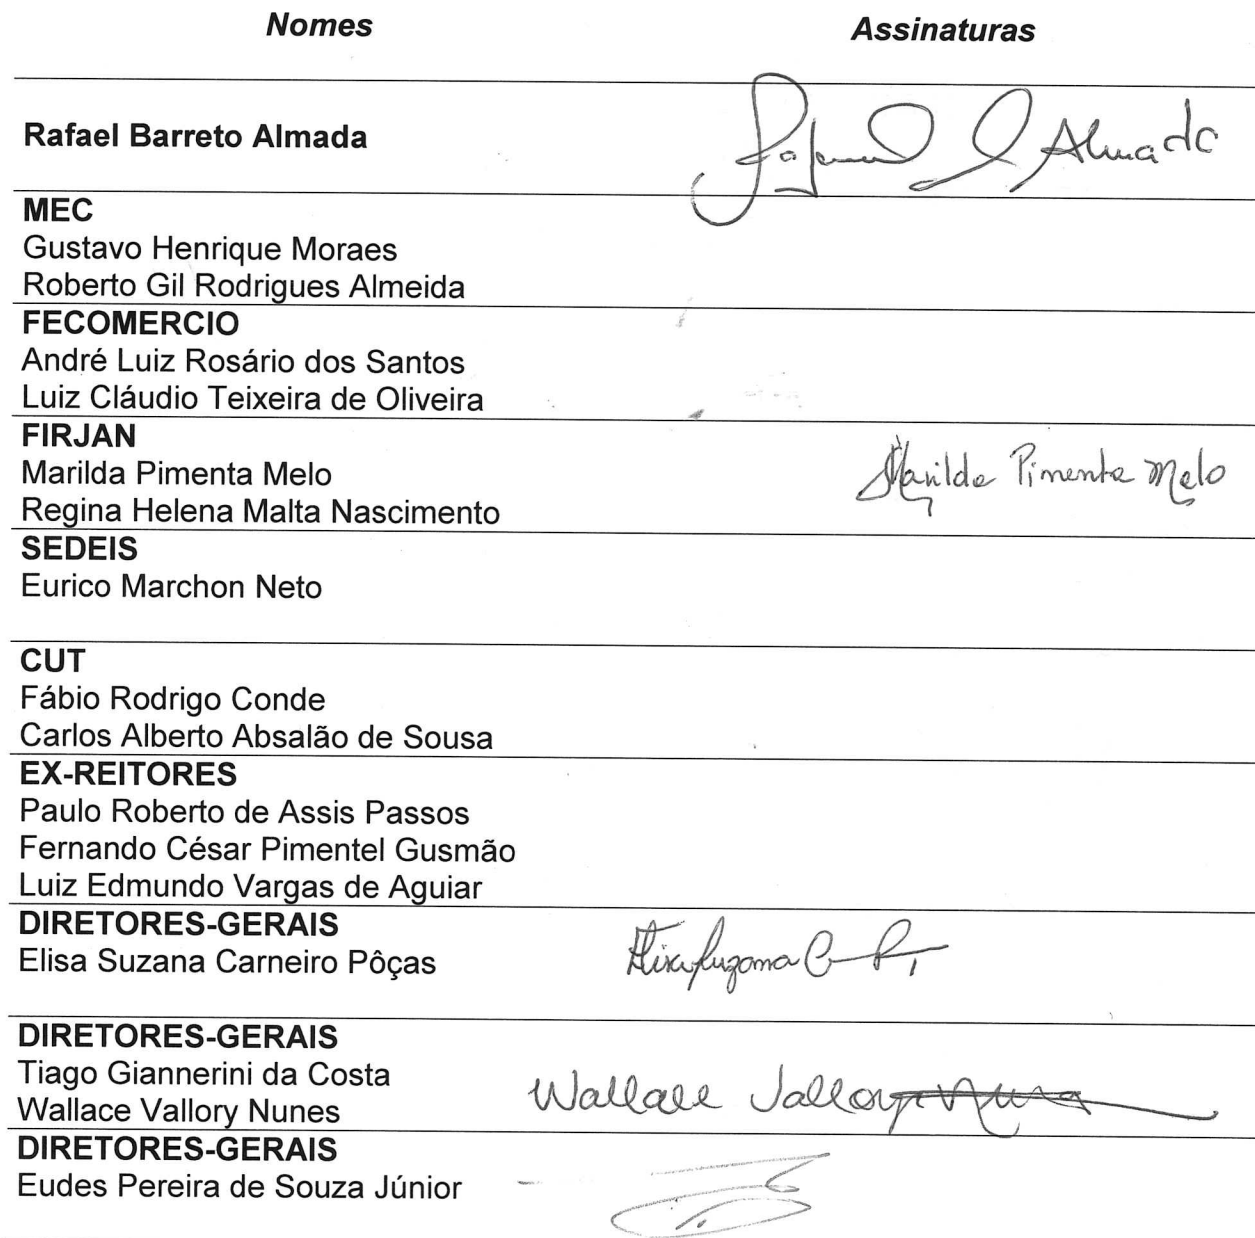 Nomes Assinaturas
Rafael Barreto Almada Rafael Almada
MEC
Gustavo Henrique Moraes
Roberto Gil Rodrigues Almeida
FECOMERCIO
André Luiz Rosário dos Santos
Luiz Cláudio Teixeira de Oliveira
FIRJAN
Marilda Pimenta Melo Marilda Pimenta Melo
Regina Helena Malta Nascimento
SEDEIS
Eurico Marchon Neto
CUT
Fábio Rodrigo Conde
Carlos Alberto Absalão de Sousa
EX-REITORES
Paulo Roberto de Assis Passos
Fernando César Pimentel Gusmão
Luiz Edmundo Vargas de Aguiar
DIRETORES-GERAIS
Elisa Suzana Carneiro Pôças Elisa Suzana C P
DIRETORES-GERAIS
Tiago Giannerini da Costa
Wallace Vallory Nunes Wallace Vallory Nunes
DIRETORES-GERAIS
Eudes Pereira de Souza Júnior